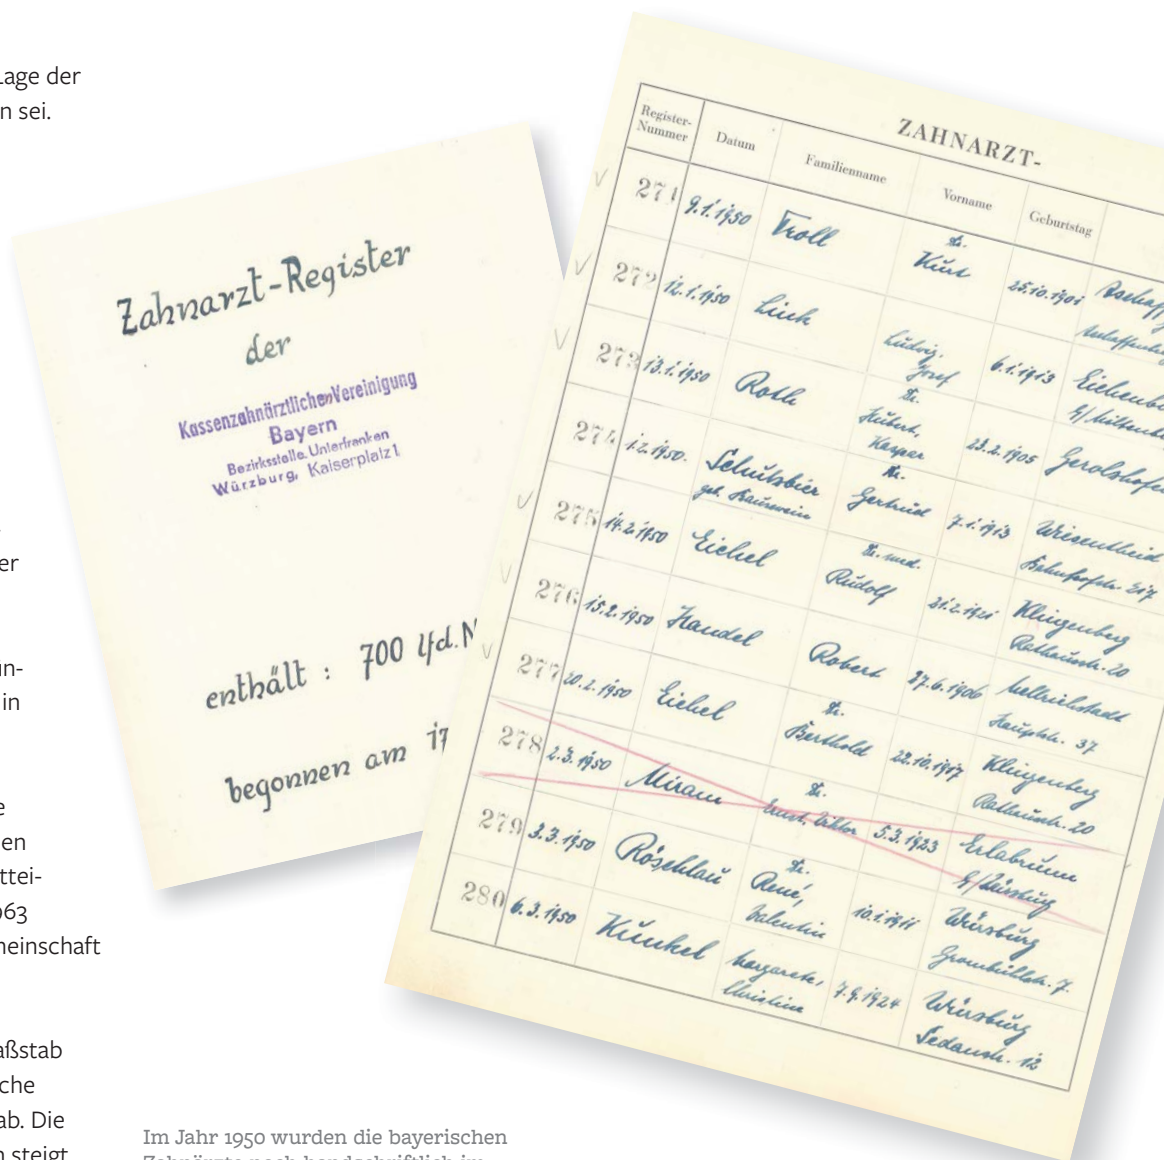 Lage der
n sei.
er
un-
in
e
en
ttei-
963
meinschaft
aßstab
che
ab. Die
n steigt
Zahnarzt-Register
der
Kassenzahnärztlichen Vereinigung
Bayern
Bezirksstelle Unterfranken
Würzburg, Kaiserplatz 1
enthält : 700 lfd. N
begonnen am 17
ZAHNARZT-
Register-Nummer Datum Familienname Vorname Geburtstag
271 9.1.1950 Troll Dr. Kurt 25.10.1901 Aschaff
272 12.1.1950 Link Ludwig, Josef 6.1.1913
273 13.1.1950 Roth Dr. Hubert, Kaspar 23.2.1905 Gerolzhofe
274 1.2.1950. Schutzbier geb. Dr. Gertrud 7.1.1913 Wiesentheid Bahnhofstr. 217
275 14.2.1950 Eichel Dr. med. Rudolf 21.2.1921 Klingenberg Rathausstr. 20
276 15.2.1950 Handel Robert 27.6.1906 Mellrichstadt Hauptstr. 37
277 20.2.1950 Eichel Dr. Berthold 22.10.1917 Klingenberg Rathausstr. 20
278 2.3.1950 Miram Dr. Ernst, Viktor 5.3.1923 Erlabrunn b/Würzburg
279 3.3.1950 Röschlau Dr. René, Valentin 10.1.1911 Würzburg Grombühlstr. 7.
280 6.3.1950 Kunkel Margarete, Christine 7.9.1924 Würzburg Sedanstr. 12
Im Jahr 1950 wurden die bayerischen